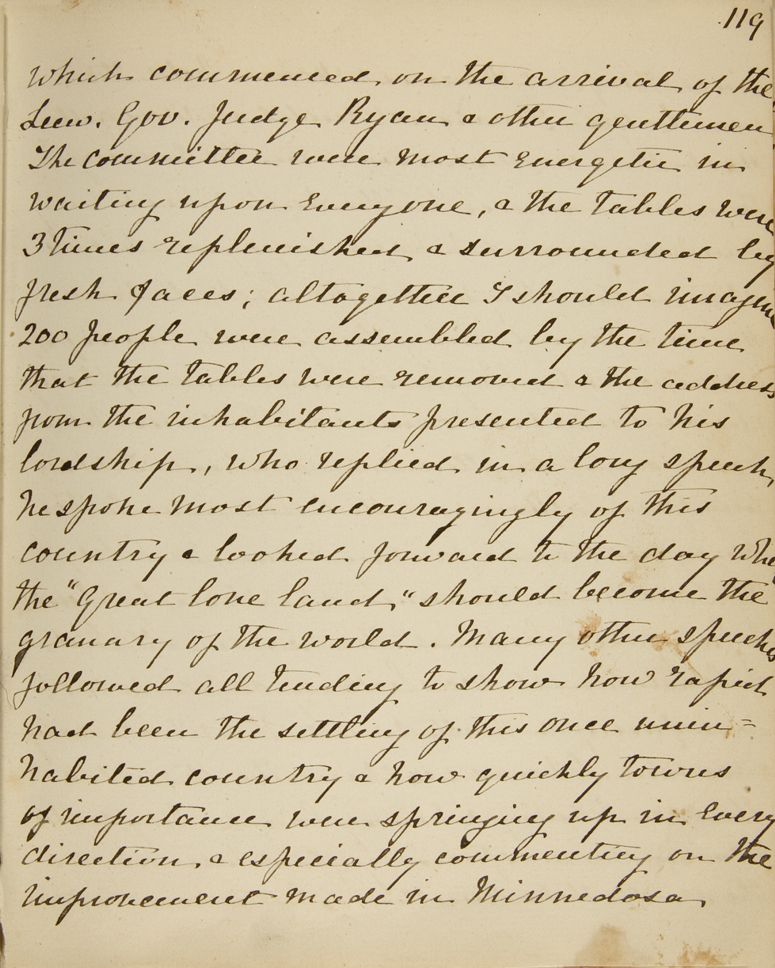 119
which commenced on the arrival of the
Lieu. Gov. Judge Ryan & other gentlemen
The committee were most energetic in
waiting upon everyone, & the tables were
3 times replenished & surrounded by
fresh faces; altogether I should imagine
200 people were assembled by the time
that the tables were removed & the address
from the inhabitants presented to his
lordship, who replied in a long speech,
he spoke most encouragingly of this
country & looked forward to the day when
the "Great lone land," should become the
granary of the world. Many other speeches
followed all tending to show how rapid
had been the settling of this once unin=
habited country & how quickly towns
of importance were springing up in every
direction, & especially commenting on the
improvement made in Minnedosa,